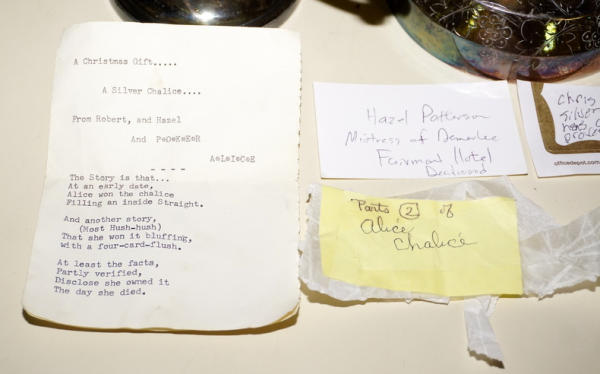 A Christmas Gift.....
A Silver Chalice....
From Robert, and Hazel
And P*O*K*E*R
A*L*I*C*E
- - - -
The Story is that...
At an early date,
Alice won the chalice
Filling an inside Straight.
And another story,
(Most Hush-hush)
That she won it bluffing,
with a four-card-flush.
At least the facts,
Partly verified,
Disclose she owned it
The day she died.
Hazel Patterson
Mistress of
Fairmont Hotel
Deadwood
Parts 2 of
Alice
Chalice
Chris
Silver
has
officedepot.com